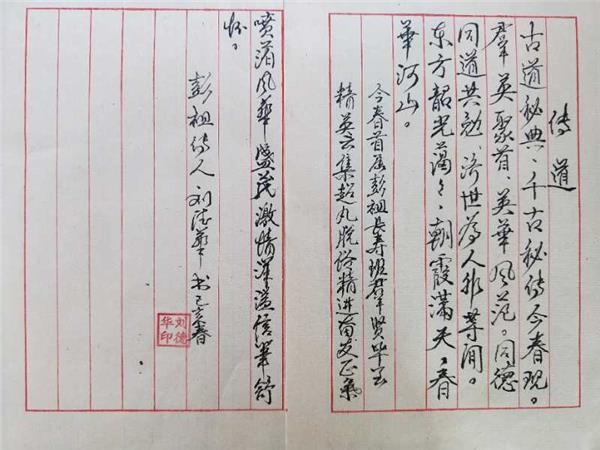 传道
古道秘典、千古秘传今春现。
羣英聚首、英華风范。同德
同道共勉、济世为人非等闲。
东方韶光蔼々、朝霞满天、春
華河山。
今春首届彭祖长寿班群贤毕至
精英云集超凡脱俗精进奋发正氣
喷涌风華盛茂激情洋溢信筆舒
怀。
彭祖传人刘德華书己亥春
刘德华印